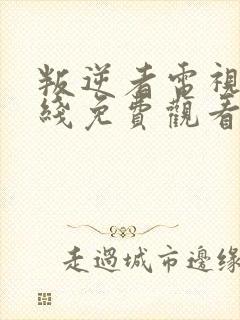 叛逆者電視
綫免費觀看
走過城市邊緣